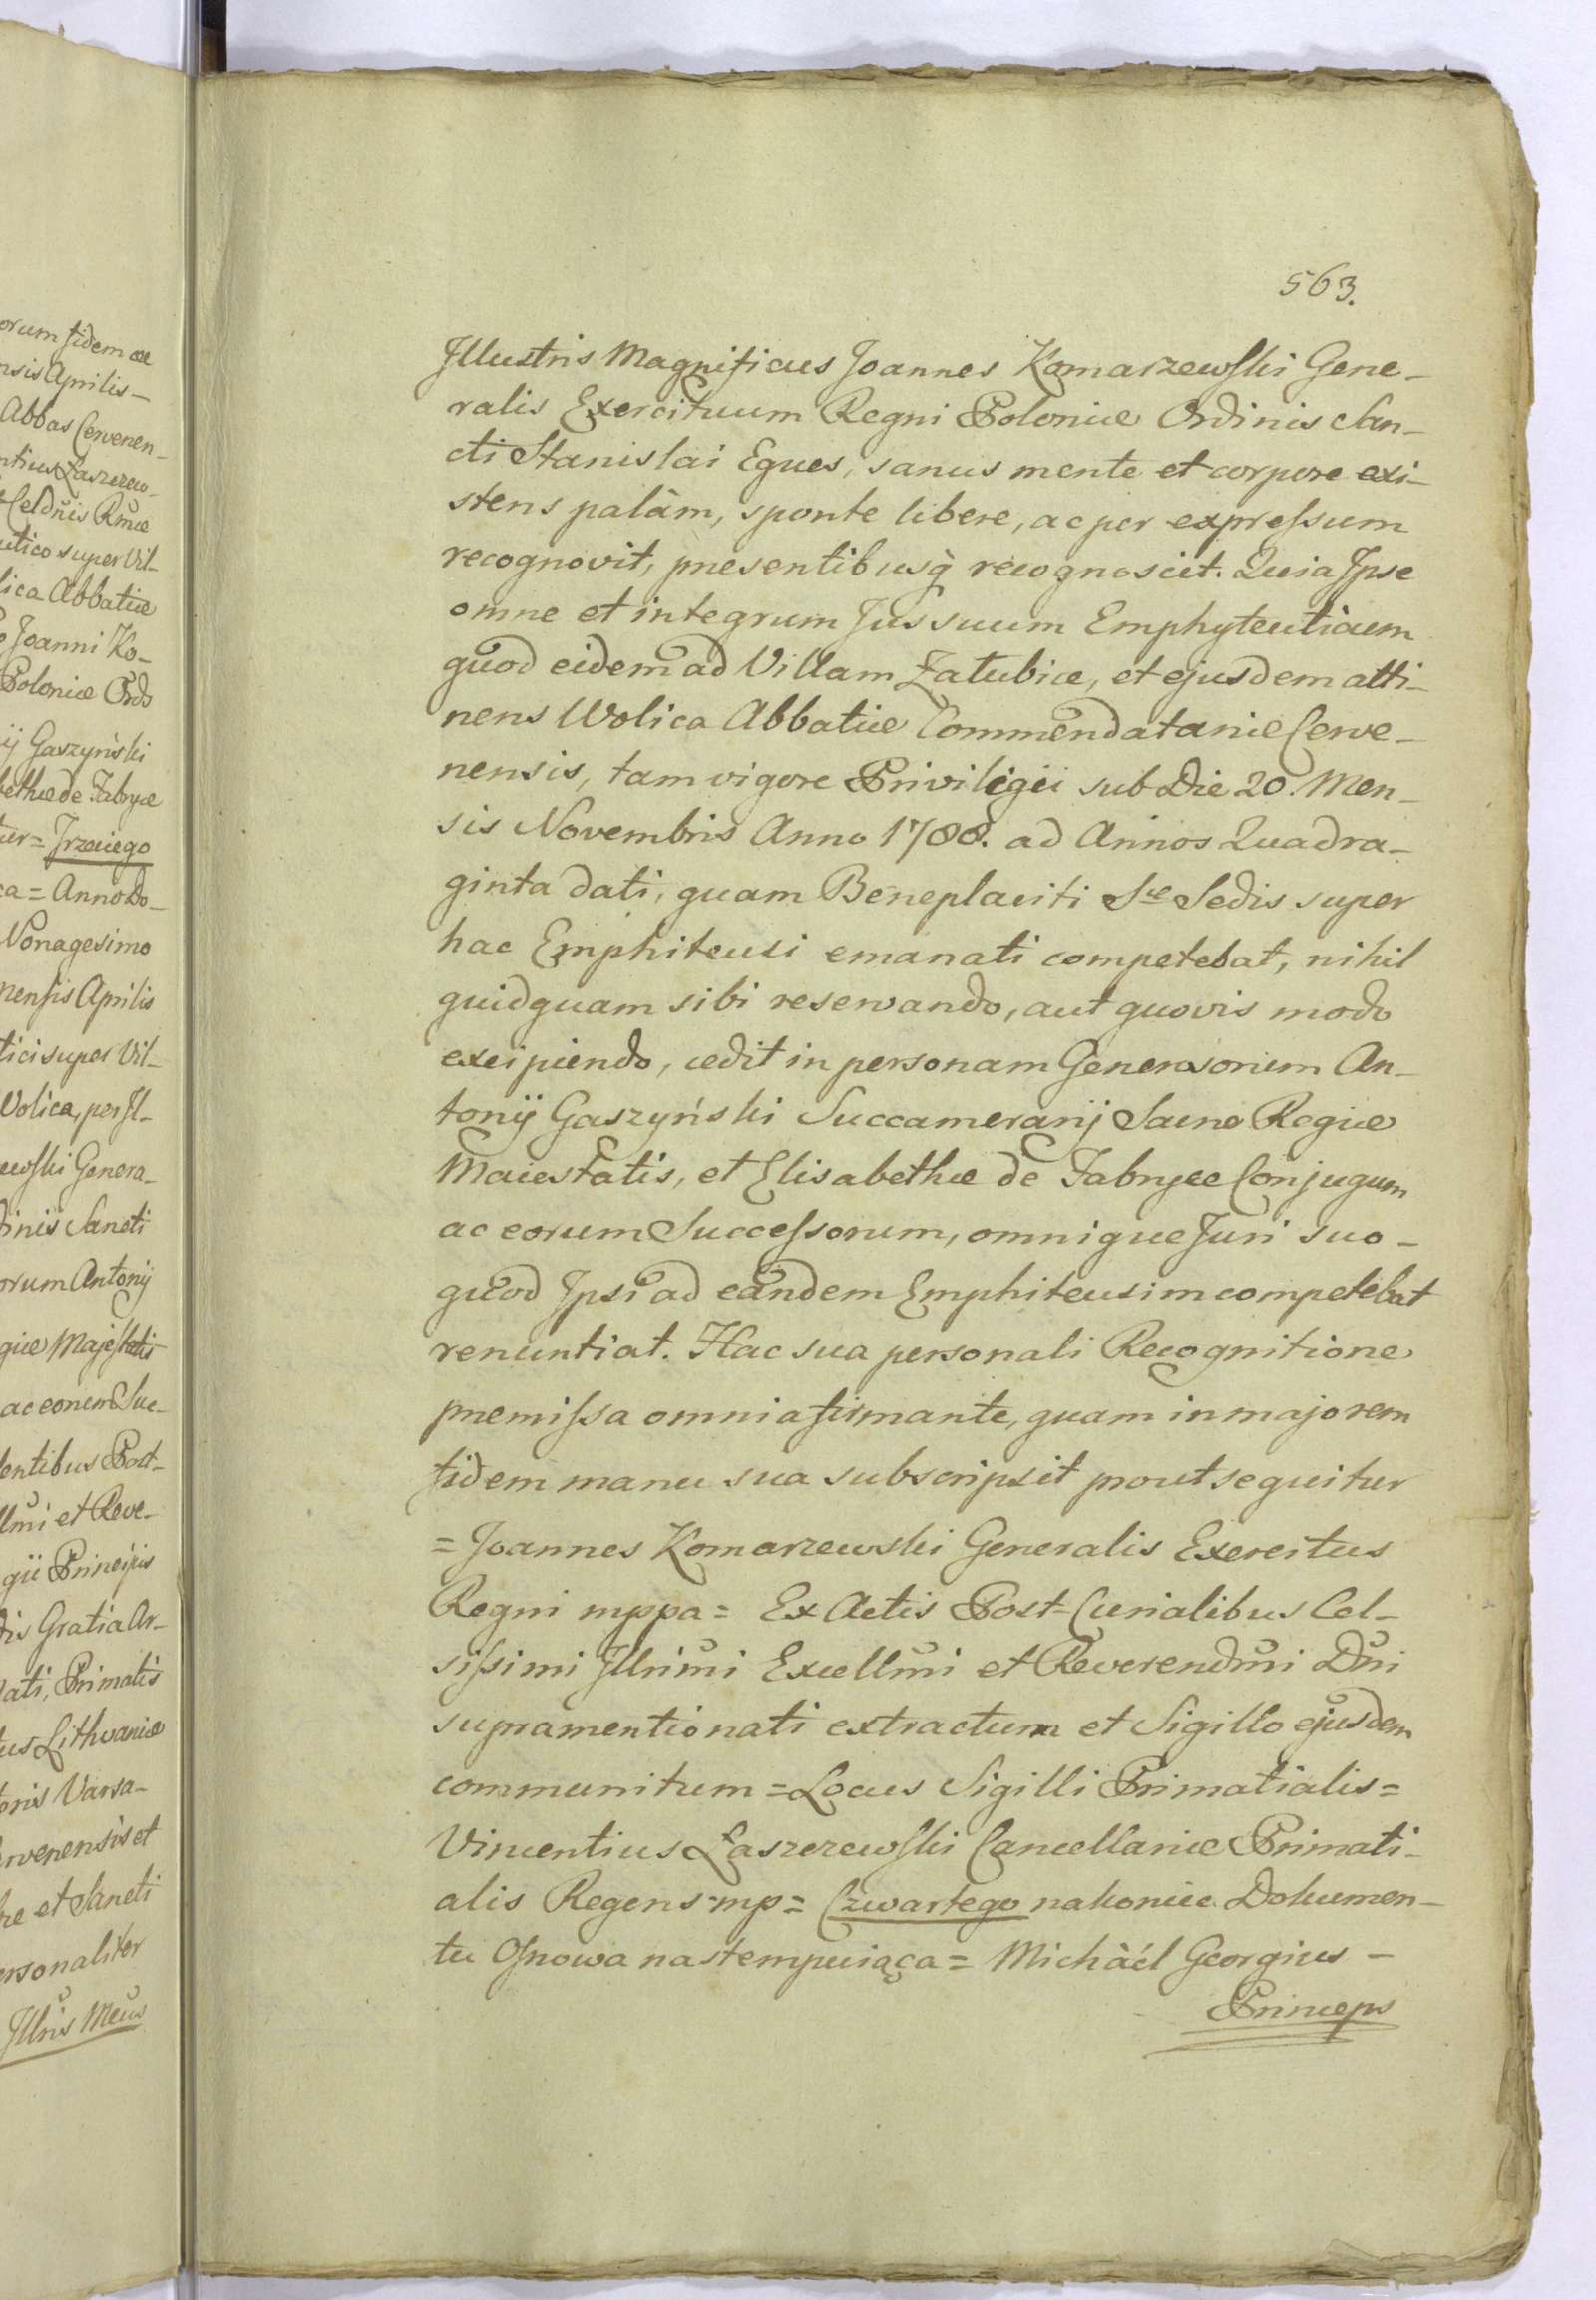 orum fidem ac
nsis Aprilis –
Abbas Cervenen-
ntius Łaszczew-
Celdnis Rmæ
utico super Vil-
lica Abbatiæ
Joanni Ko-
Poloniæ Ords
ij Gaszyński
bethæ de Fabryæ
tur = Trzeciego
ca = Anno Do-
Nonagesimo
mensis Aprilis
tici super Vil-
Wolica, per Jl-
ewski Genera-
dinis Sancti
orum Antonij
giæ Majestatis
ac eorum Suc-
lentibus Post-
llmi et Reve-
gii Principis
dis Gratia Ar-
lati, Primatis
us Lithvaniæ
oris Varsa-
rvenensis et
re et Sancti
ersonaliter
Jllris Mcus
563.
Jllustris Magnificus Joannes Komarzewski Gene-
ralis Exercituum Regni Poloniæ Ordinis San-
cti Stanislai Eques, sanus mente et corpore exi-
stens palàm, sponte libere, ac per expressum
recognovit, presentibusq̀ recognoscit. Quia Jpse
omne et integrum Jus suum Emphyteuticum
quod eidem ad Villam Załubice, et ejusdem atti-
nens Wolica Abbatiæ Commendatariæ Cerve-
nensis, tam vigore Priviligii sub Die 20. Men-
sis Novembris Anno 1788. ad Annos Quadra-
ginta dati, quam Beneplaciti Sæ Sedis super
hac Emphiteusi emanati competebat, nihil
quidquam sibi reservando, aut quovis modo
excipiendo, cedit in personam Generosorum An-
tonij Gaszyński Succamerarij Sacræ Regiæ
Maiestatis, et Elisabethæ de Fabryæ Conjugum
ac eorum Successorum, omnique Juri suo –
quod Jpsi ad eandem Emphiteusim competebat
renuntiat. Hac sua personali Recognitione
premissa omnia firmante, quam in majorem
fidem manu sua subscripsit prout sequitur
= Joannes Komarzewski Generalis Exercitus
Regni mppa = Ex Actis Post-Curialibus Cel-
sissimi Jllrimi Excellmi et Reverendmi Dni
supramentionati extractum et Sigillo ejusdem
communitum = Locus Sigilli Primatialis =
Vincentius Łaszczewski Cancellariæ Primati-
alis Regens mp = Czwartego nakoniec Dokumen-
tu Osnowa nastempuiąca = Michàél Georgius –
Princeps